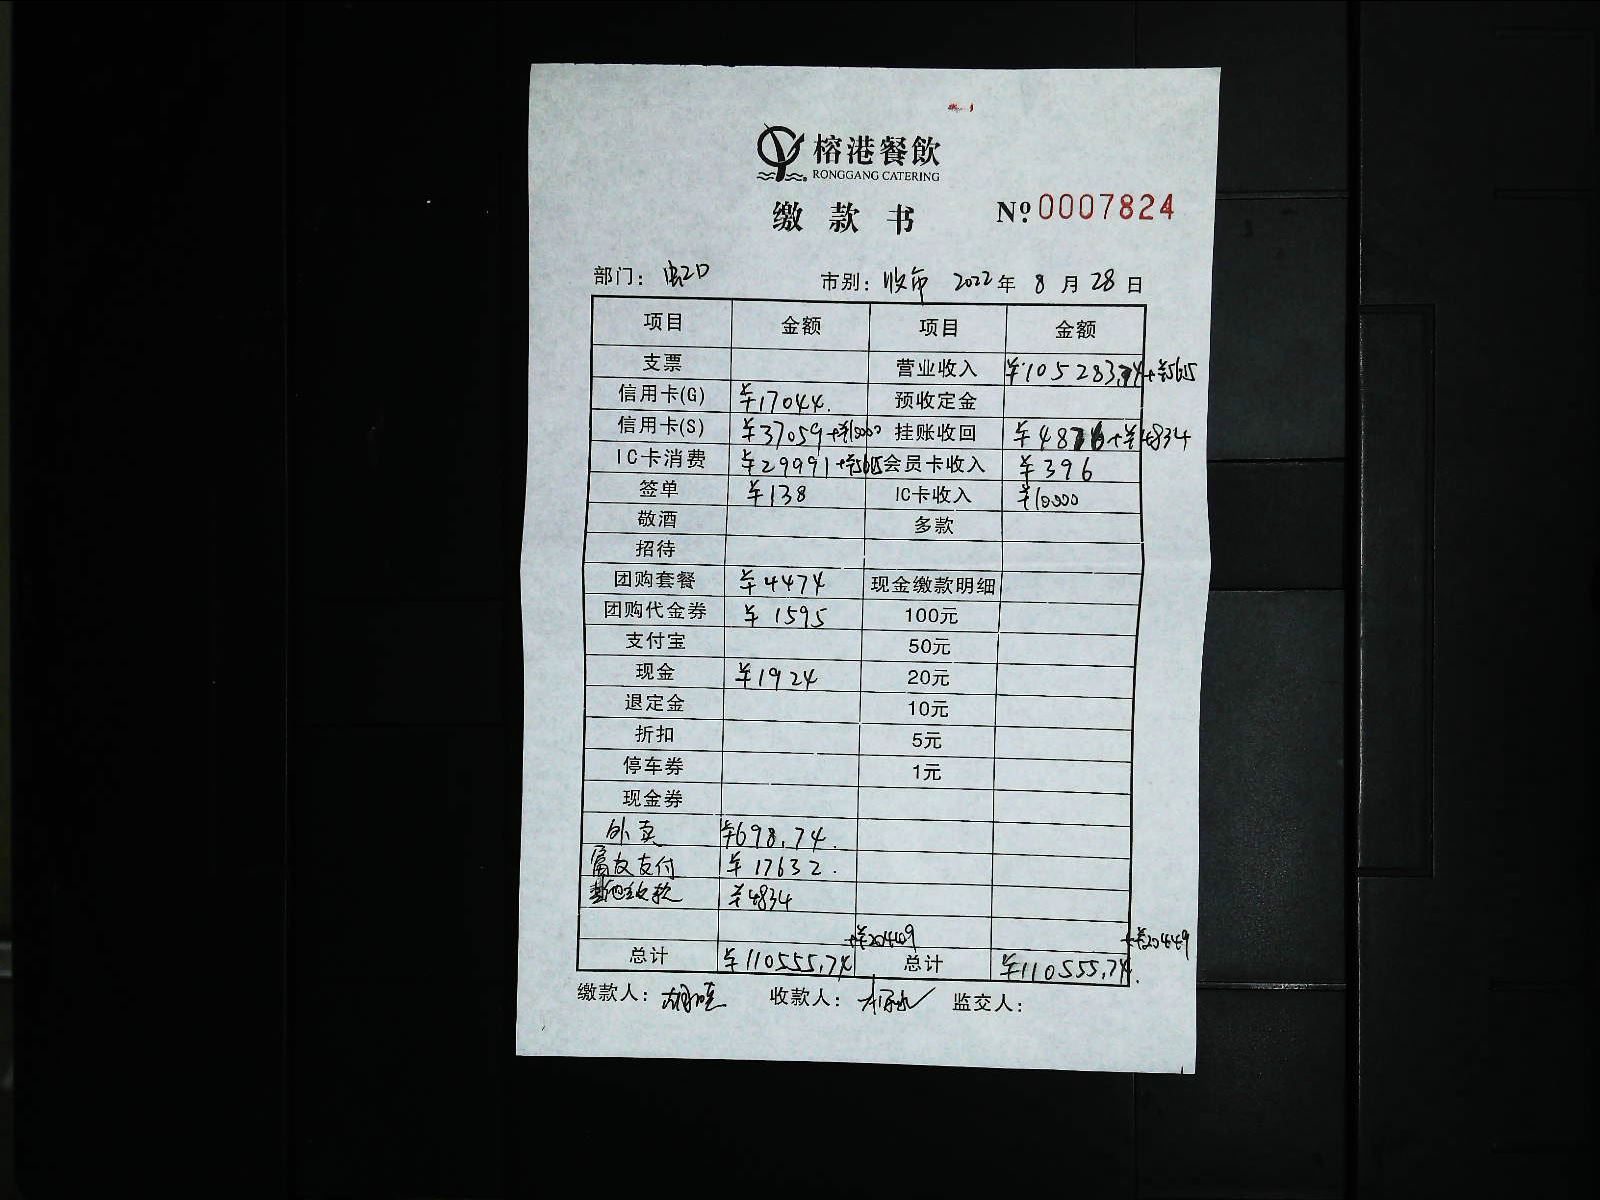 榕港餐飲
RONGGANG CATERING
缴款书 № 0007824
部门： 虹口 市别： 收市 2022年 8月 28日
项目 金额 项目 金额
支票 营业收入 ¥105283.74+¥5615
信用卡(G) ¥17044. 预收定金
信用卡(S) ¥37059+¥10000 挂账收回 ¥4876+¥4834
IC卡消费 ¥29991+¥5615 会员卡收入 ¥396
签单 ¥138 IC卡收入 ¥10000
敬酒 多款
招待
团购套餐 ¥4474 现金缴款明细
团购代金券 ¥1595 100元
支付宝 50元
现金 ¥1924 20元
退定金 10元
折扣 5元
停车券 1元
现金券
外卖 ¥698.74.
富友支付 ¥17632.
¥4834
+¥20449 +¥20449
总计 ¥110555.74 总计 ¥110555.74.
缴款人： 收款人： 监交人：